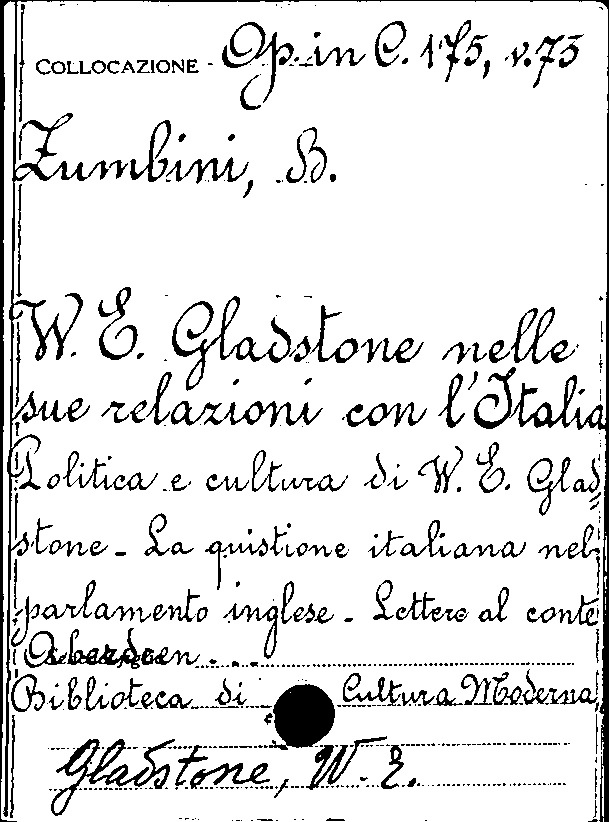 COLLOCAZIONE - Op. in C. 175, v. 73
Zumbini, B.
W. E. Gladstone nelle
sue relazioni con l'Italia
Politica e cultura di W. E. Glad=
stone - La quistione italiana nel
parlamento inglese - Lettere al conte
Aberdeen...
Biblioteca di Cultura Moderna,
Gladstone, W. E.